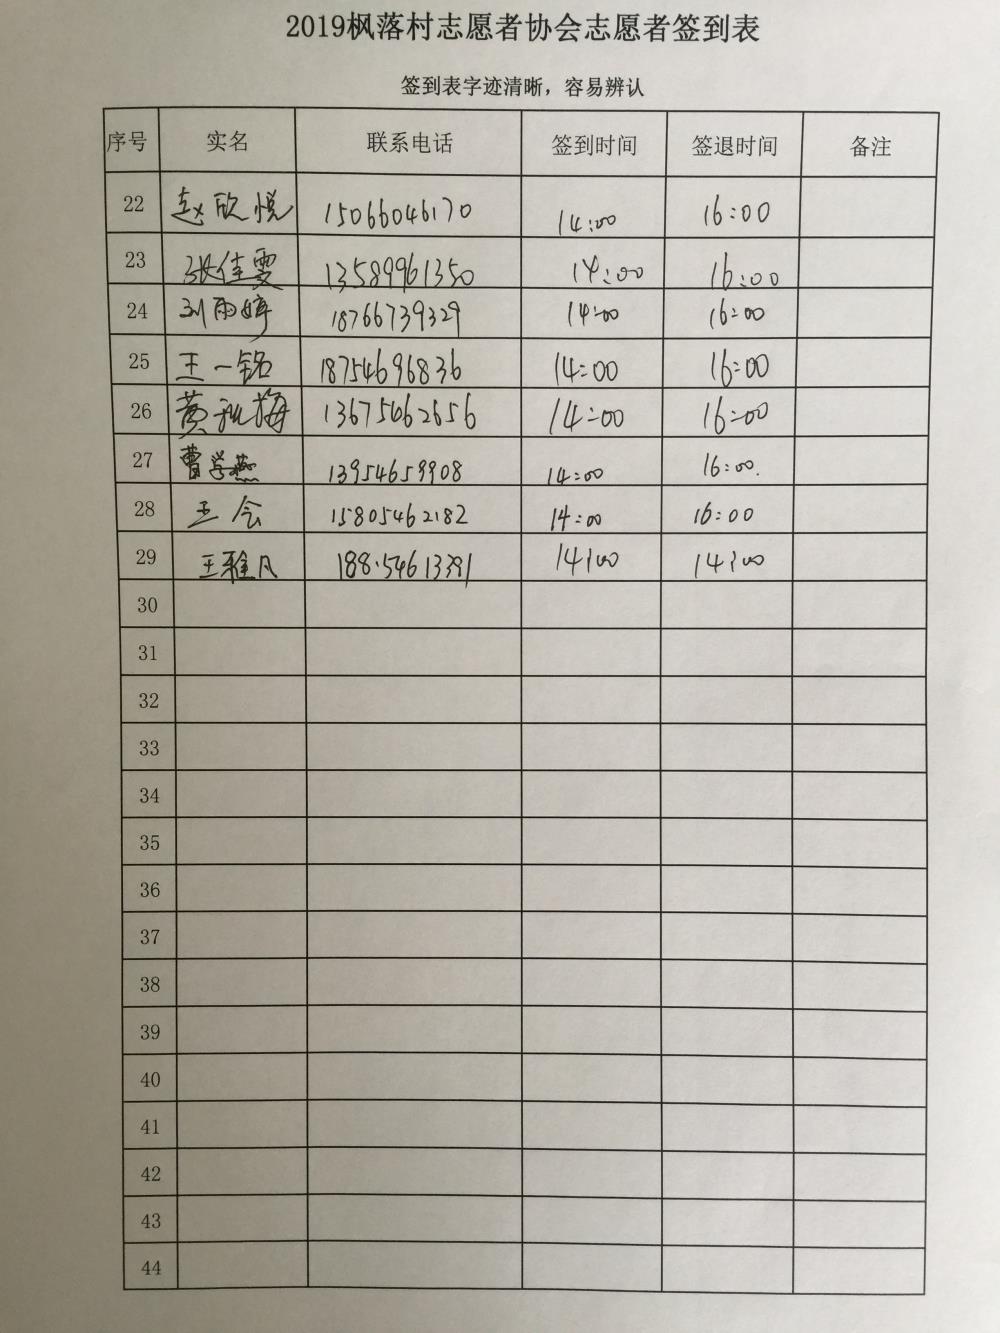 2019枫落村志愿者协会志愿者签到表
签到表字迹清晰，容易辨认
序号 实名 联系电话 签到时间 签退时间 备注
22 赵欣悦 15066046170 14:00 16:00
23 张佳雯 13589961350 14:00 16:00
24 刘雨婷 18766739329 14:00 16:00
25 王一铭 18754696836 14:00 16:00
26 黄秋梅 13675462656 14:00 16:00
27 曹学燕 13954659908 14:00 16:00.
28 王会 15805462182 14:00 16:00
29 王雅凡 188·54613391 14:00 14:00
30
31
32
33
34
35
36
37
38
39
40
41
42
43
44